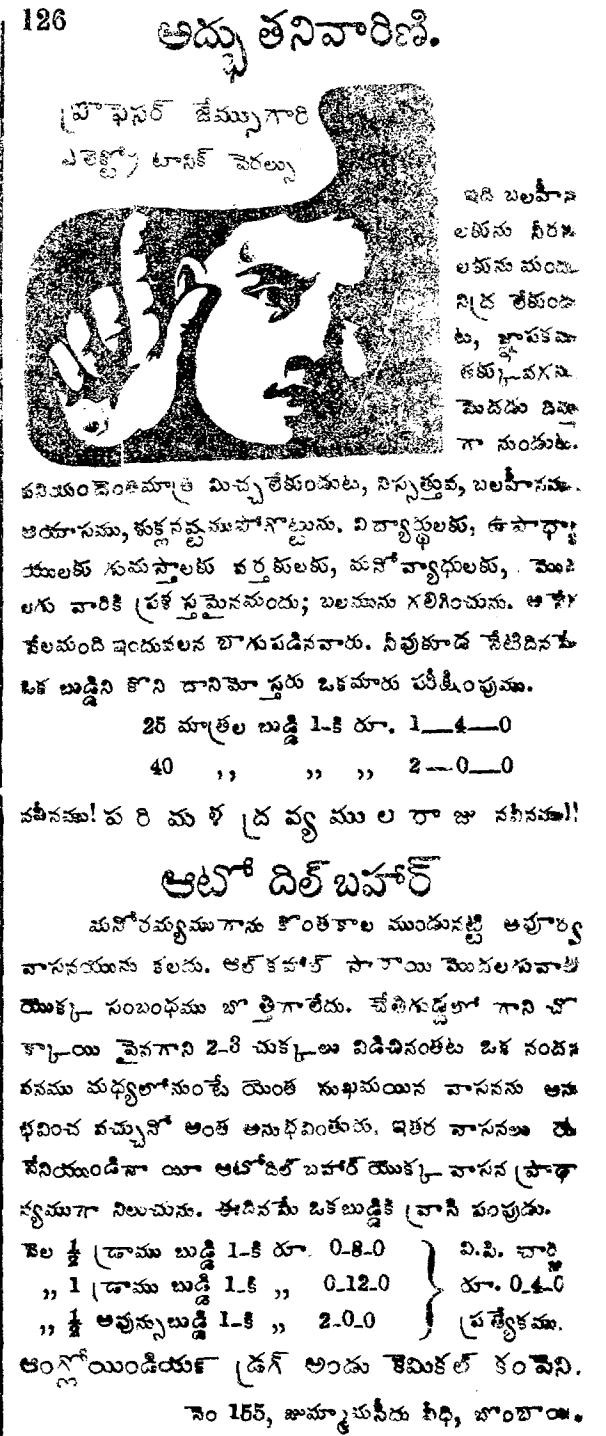 126
అద్భుతనివారిణి.
ప్రొఫెసర్ జేమ్సుగారి
ఎలెక్ట్రో టానిక్ పెరల్సు
ఇది బలహీన
లకును నీరస
లకును మంచి
నిద్ర లేకుండు
ట, జ్ఞాపకము
తక్కువగను
మెదడు దిమ్మ
గా నుండుట.
పనియందెంతమాత్ర మిచ్చలేకుండుట, నిస్సత్తువ, బలహీనము.
ఆయాసము, శుక్లనష్టముపోగొట్టును. విద్యార్థులకు, ఉపాధ్యా
యులకు గుమస్తాలకు వర్తకులకు, మనోవ్యాధులకు, మొద
లగు వారికి ప్రశస్తమైనమందు; బలమును గలిగించును.
వేలమంది ఇందువలన బాగుపడినవారు. నీవుకూడ నేటిదినమే
ఒక బుడ్డిని కొని దానిమో స్తరు ఒకమారు పరీక్షింపుము.
25 మాత్రల బుడ్డి 1-కి రూ. 1—4—0
40 ,, ,, ,, 2—0—0
నవీనము! పరిమళ ద్రవ్యములరాజు నవీనము!!
ఆటో దిల్ బహార్
మనోరమ్యముగాను కొంతకాల ముండునట్టి అపూర్వ
వాసనయును కలదు. ఆల్ కహాల్ సారాయి మొదలగువాటి
యొక్క సంబంధము బొత్తిగాలేదు. చేతిగుడ్డలో గాని చొ
క్కాయి పైనగాని 2-3 చుక్కలు విడిచినంతట ఒక నందన
వనము మధ్యలోనుంటే యెంత సుఖమయిన వాసనను అను
భవించ వచ్చునో అంత అనుభవింతురు. ఇతర వాసనలు యే
వేనియుండినా యీ ఆటోదిల్ బహార్ యొక్క వాసన ప్రాధా
న్యముగా నిలుచును. ఈదినమే ఒకబుడ్డికి వ్రాసి పంపుడు.
వెల ½ డ్రాము బుడ్డి 1-కి రూ. 0-8-0 } వి.పి. చార్జి
,, 1 డ్రాము బుడ్డి 1-కి ,, 0-12-0 రూ. 0-4-0
,, ½ అవున్సుబుడ్డి 1-కి ,, 2-0-0 ప్రత్యేకము.
ఆంగ్లోయిండియన్ డ్రగ్ అండు కెమికల్ కంపెని.
నెం 155, జుమ్మామసీదు వీధి, బొంబాయి.